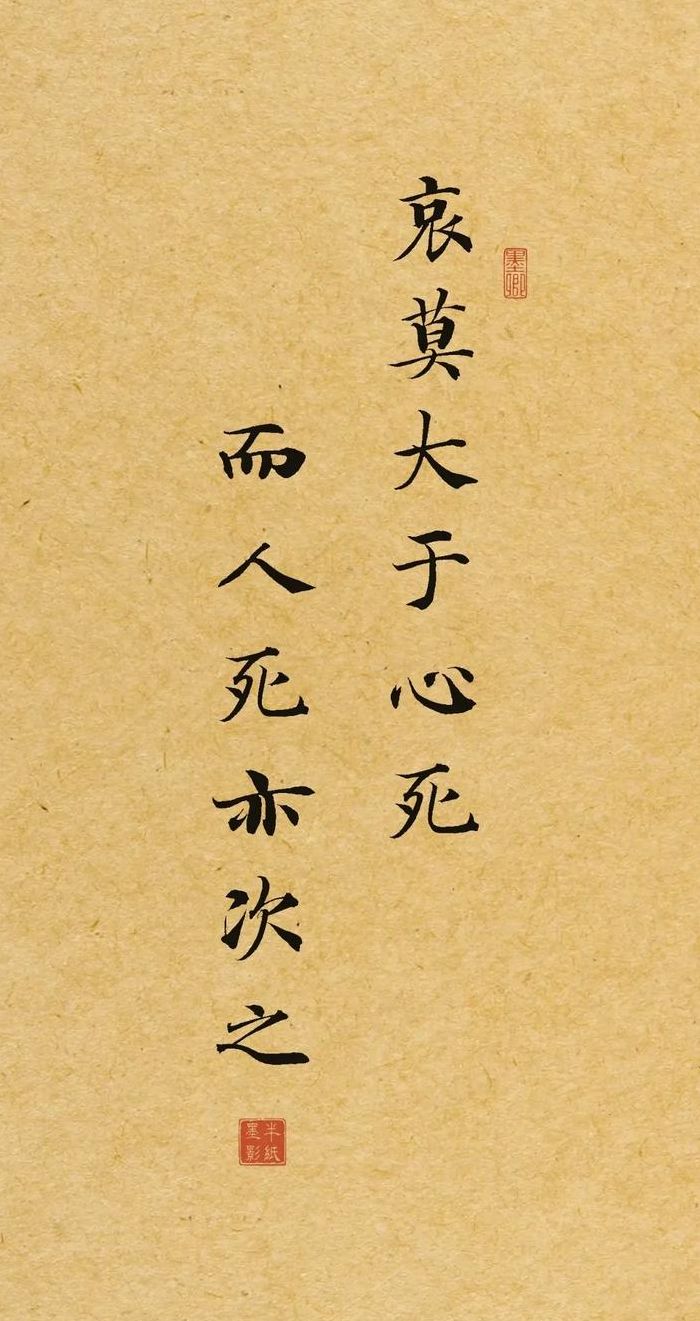 哀莫大于心死
而人死亦次之
墨卿
半纸墨影